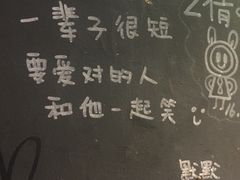 一辈子很短
要爱对的人
和他一起笑
默默
16.